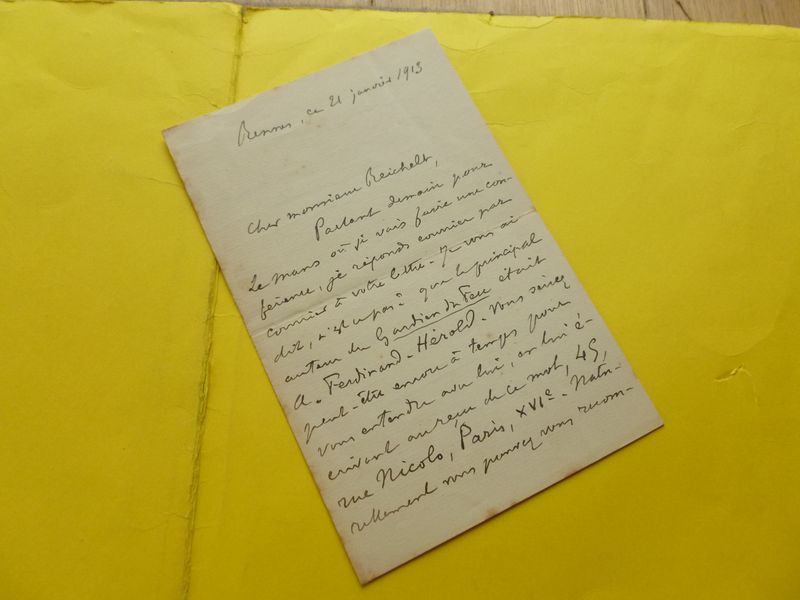 Rennes, ce 21 janvier 1913
Cher monsieur Reichelt,
Partant demain pour
Le Mans où je vais faire une con-
férence, je réponds courrier par
courrier à votre lettre - Je vous ai
dit, n'est-ce pas? que le principal
auteur du Gardien du Feu était
A. Ferdinand-Hérold. Vous seriez
peut-être encore à temps pour
vous entendre avec lui, en lui é-
crivant au reçu de ce mot, 45,
rue Nicolo, Paris, XVIe. Natu-
rellement vous pourrez vous recom-